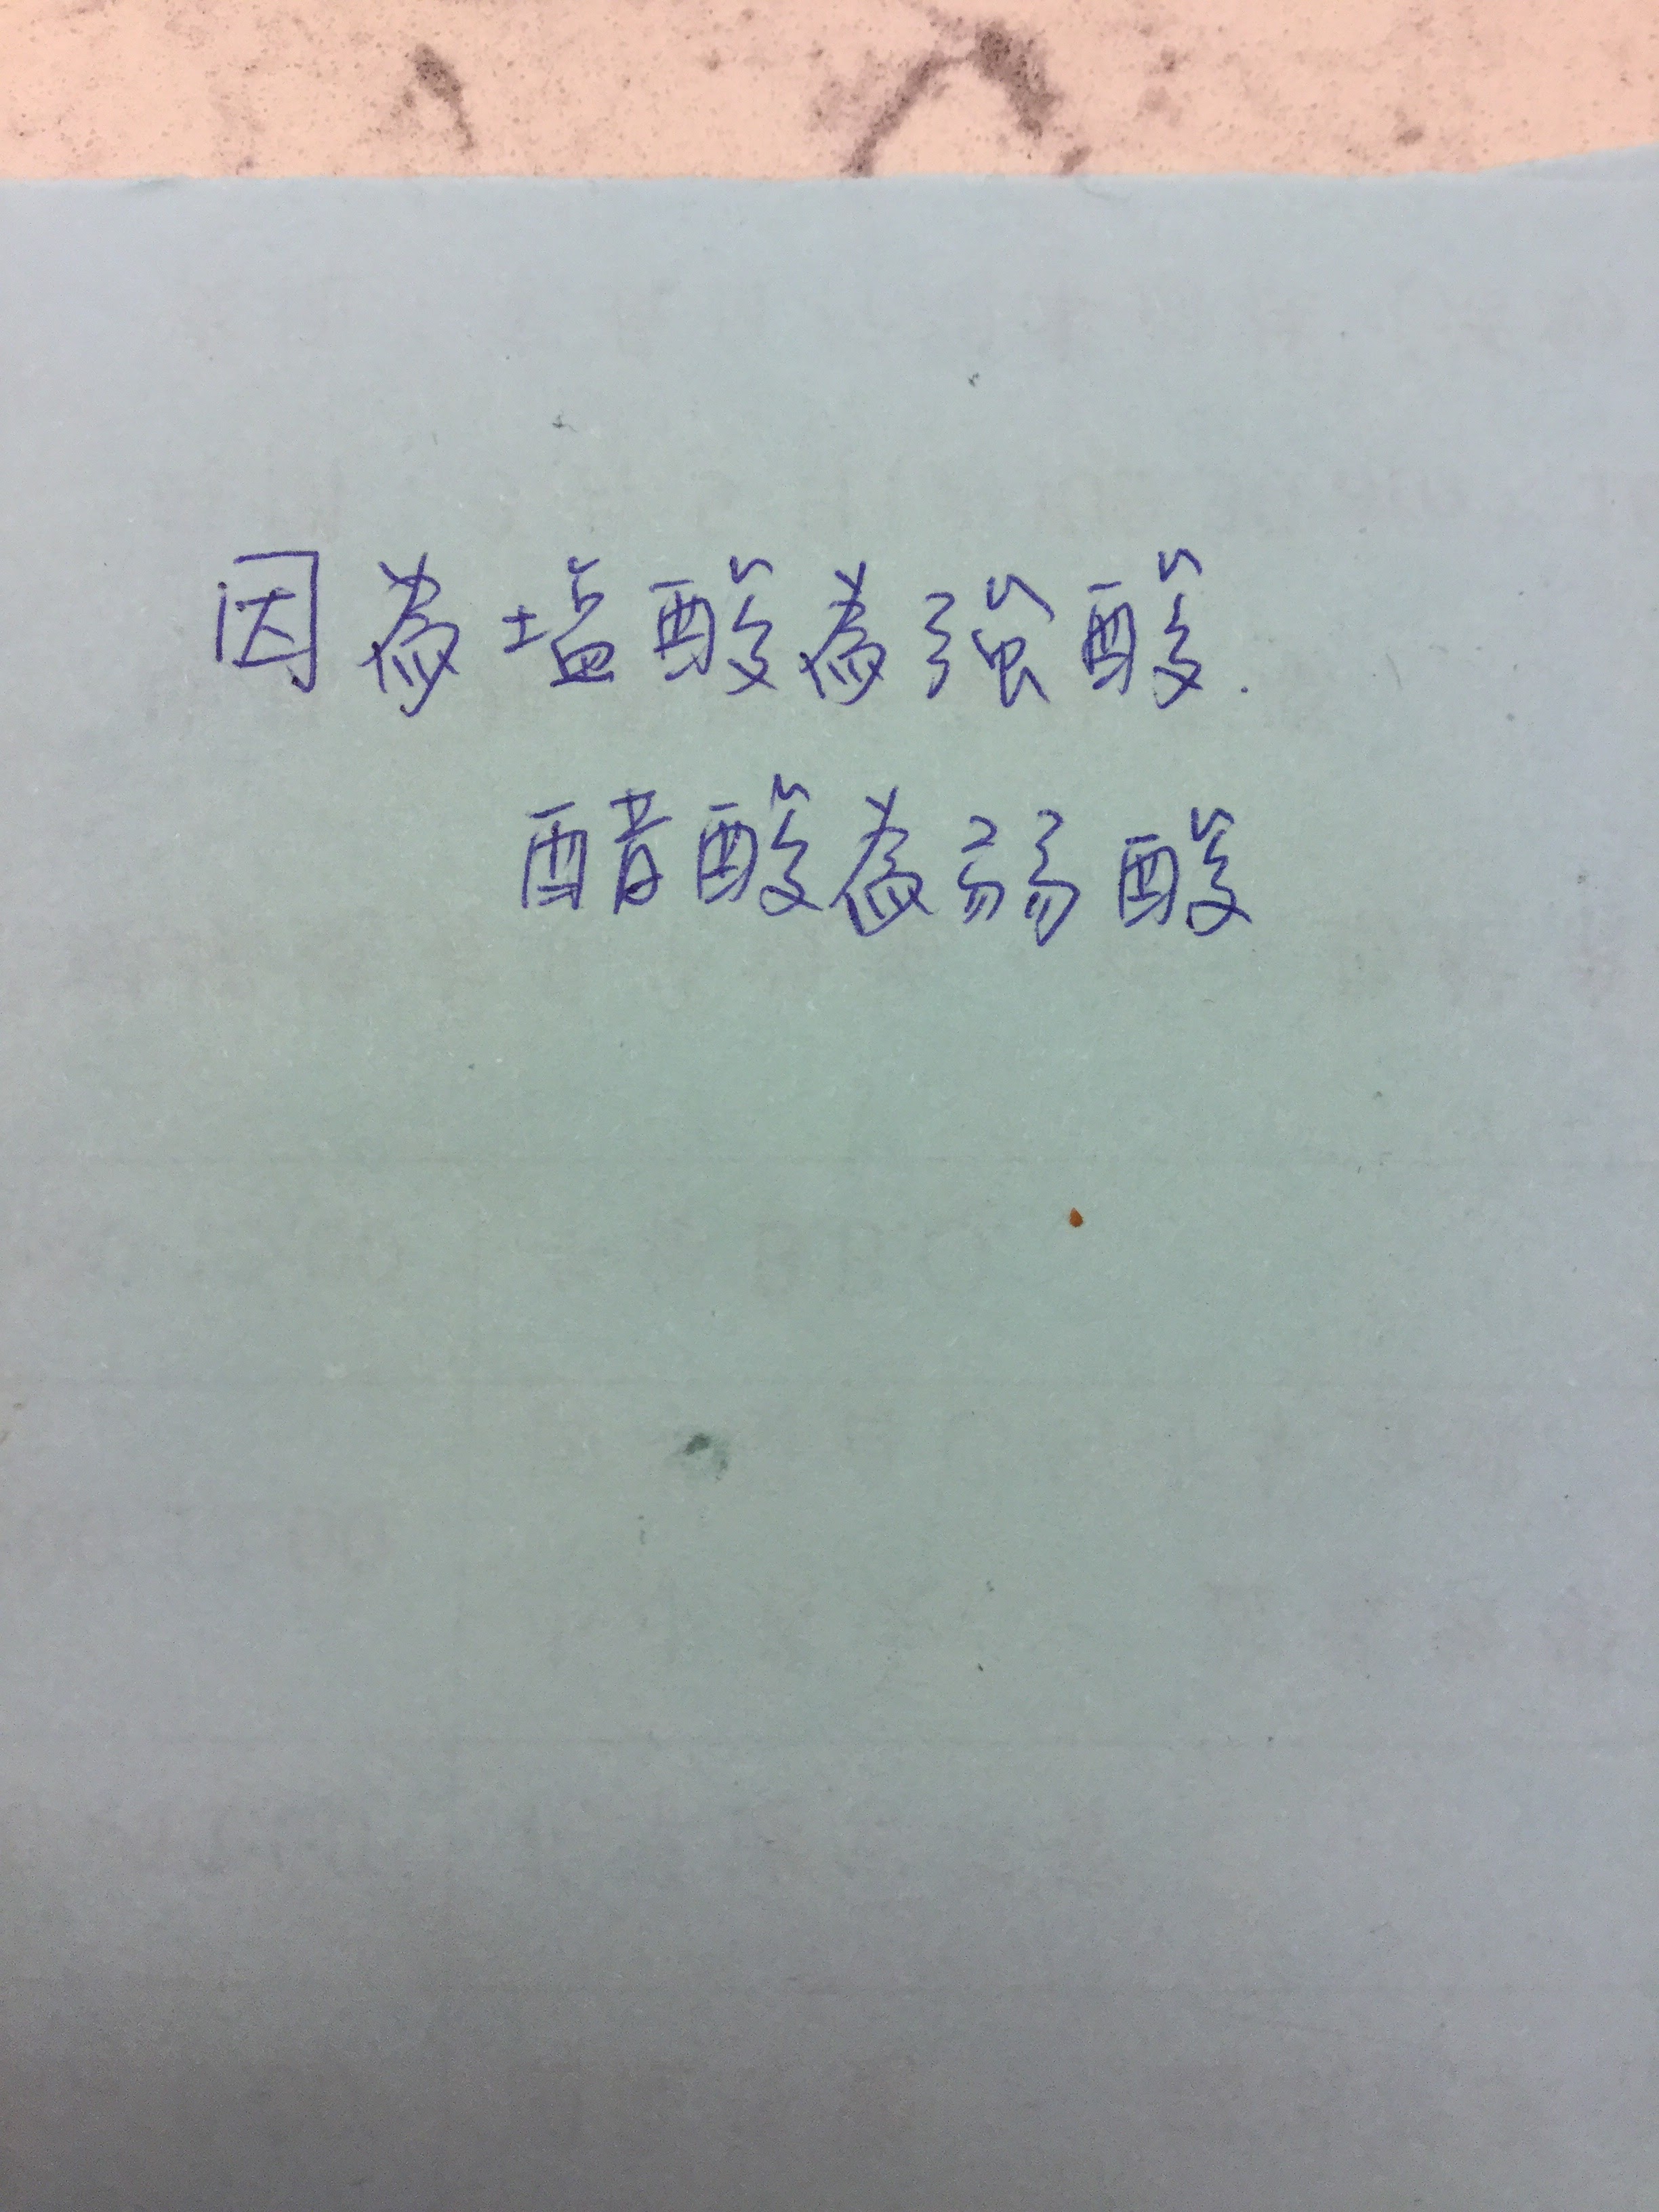 因為塩酸為強酸.
醋酸為弱酸